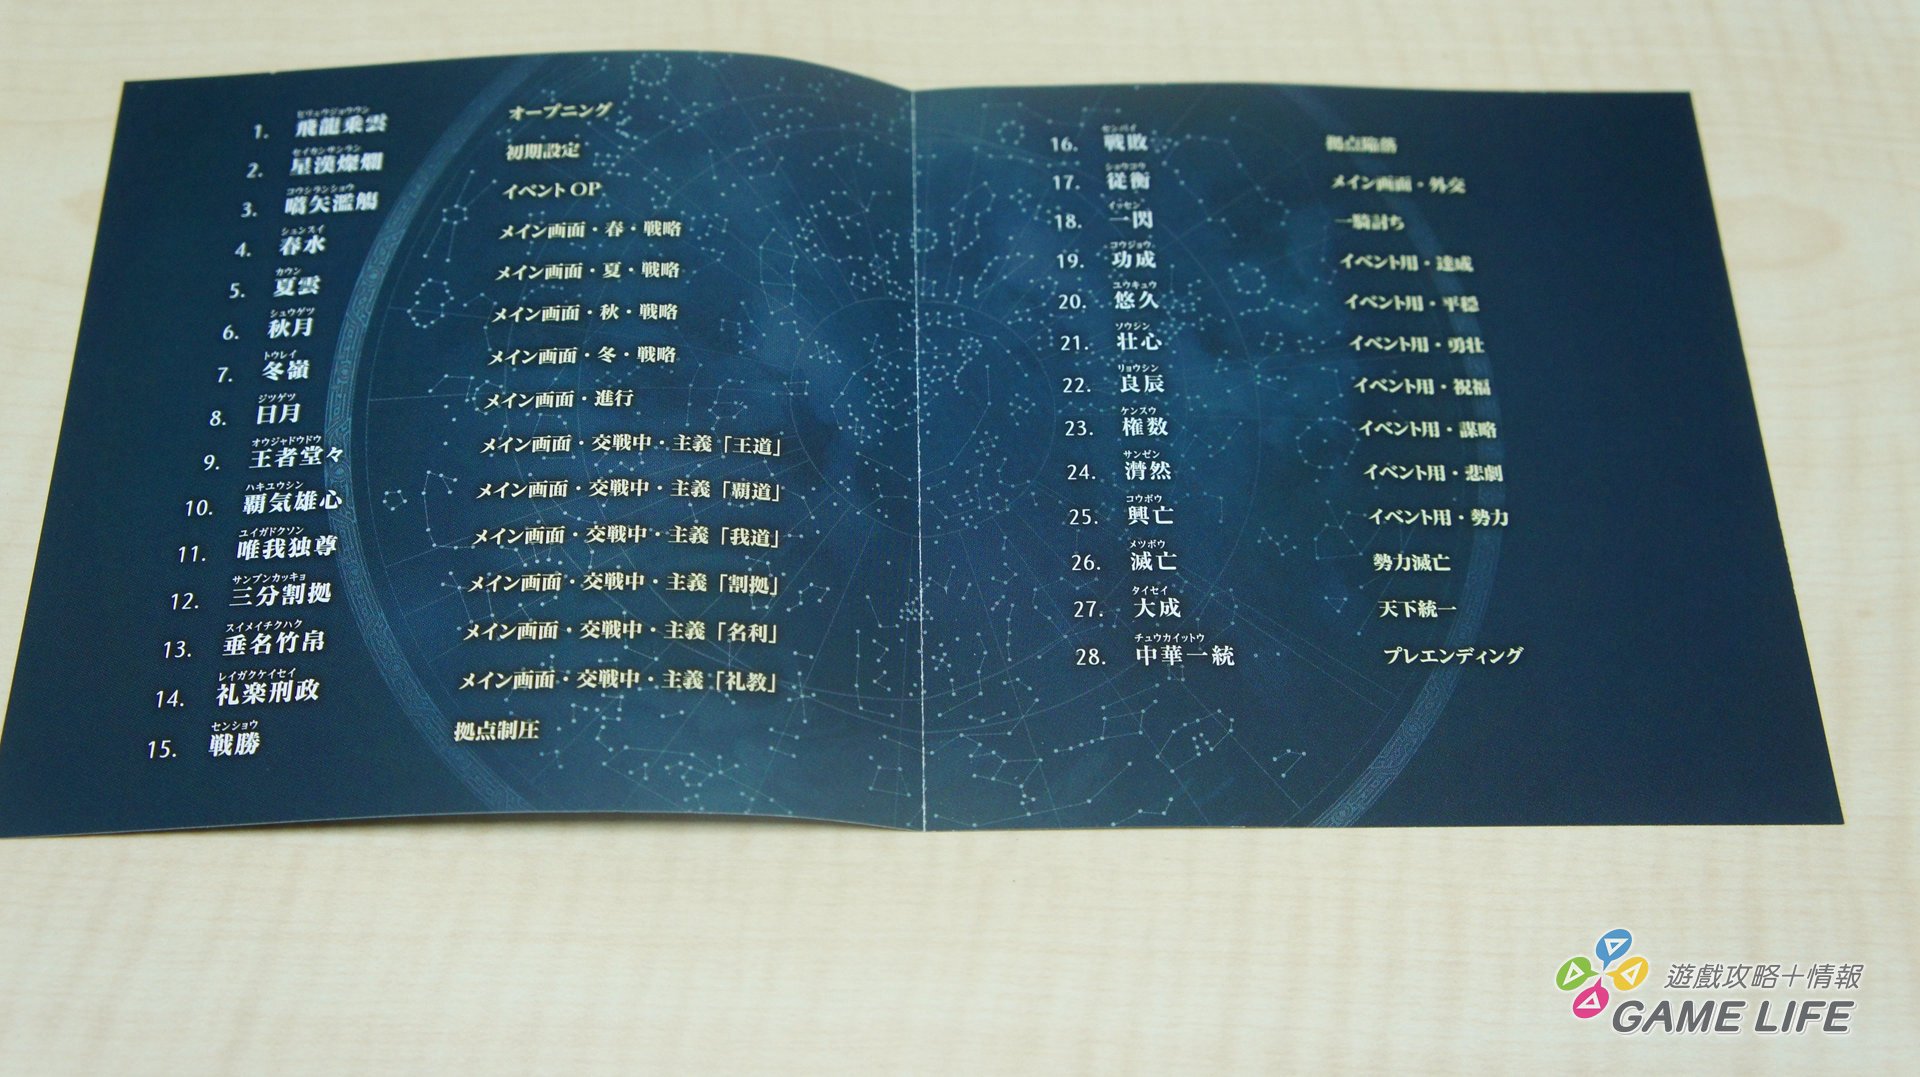 ヒリュウジョウウン
1. 飛龍乗雲 オープニング
セイカンサンラン
2. 星漢燦爛 初期設定
コウシランショウ
3. 嚆矢濫觴 イベントOP
シュンスイ
4. 春水 メイン画面・春・戦略
カウン
5. 夏雲 メイン画面・夏・戦略
シュウゲツ
6. 秋月 メイン画面・秋・戦略
トウレイ
7. 冬嶺 メイン画面・冬・戦略
ジツゲツ
8. 日月 メイン画面・進行
オウジャドウドウ
9. 王者堂々 メイン画面・交戦中・主義「王道」
ハキユウシン
10. 覇気雄心 メイン画面・交戦中・主義「覇道」
ユイガドクソン
11. 唯我独尊 メイン画面・交戦中・主義「我道」
サンブンカッキョ
12. 三分割拠 メイン画面・交戦中・主義「割拠」
スイメイチクハク
13. 垂名竹帛 メイン画面・交戦中・主義「名利」
レイガクケイセイ
14. 礼楽刑政 メイン画面・交戦中・主義「礼教」
センショウ
15. 戦勝 拠点制圧
センパイ
16. 戦敗 拠点陥落
ショウコウ
17. 従衡 メイン画面・外交
イッセン
18. 一閃 一騎討ち
コウジョウ
19. 功成 イベント用・達成
ユウキュウ
20. 悠久 イベント用・平穏
ソウシン
21. 壮心 イベント用・勇壮
リョウシン
22. 良辰 イベント用・祝福
ケンスウ
23. 権数 イベント用・謀略
サンゼン
24. 潸然 イベント用・悲劇
コウボウ
25. 興亡 イベント用・勢力
メツボウ
26. 滅亡 勢力滅亡
タイセイ
27. 大成 天下統一
チュウカイットウ
28. 中華一統 プレエンディング
遊戲攻略＋情報
GAME LIFE